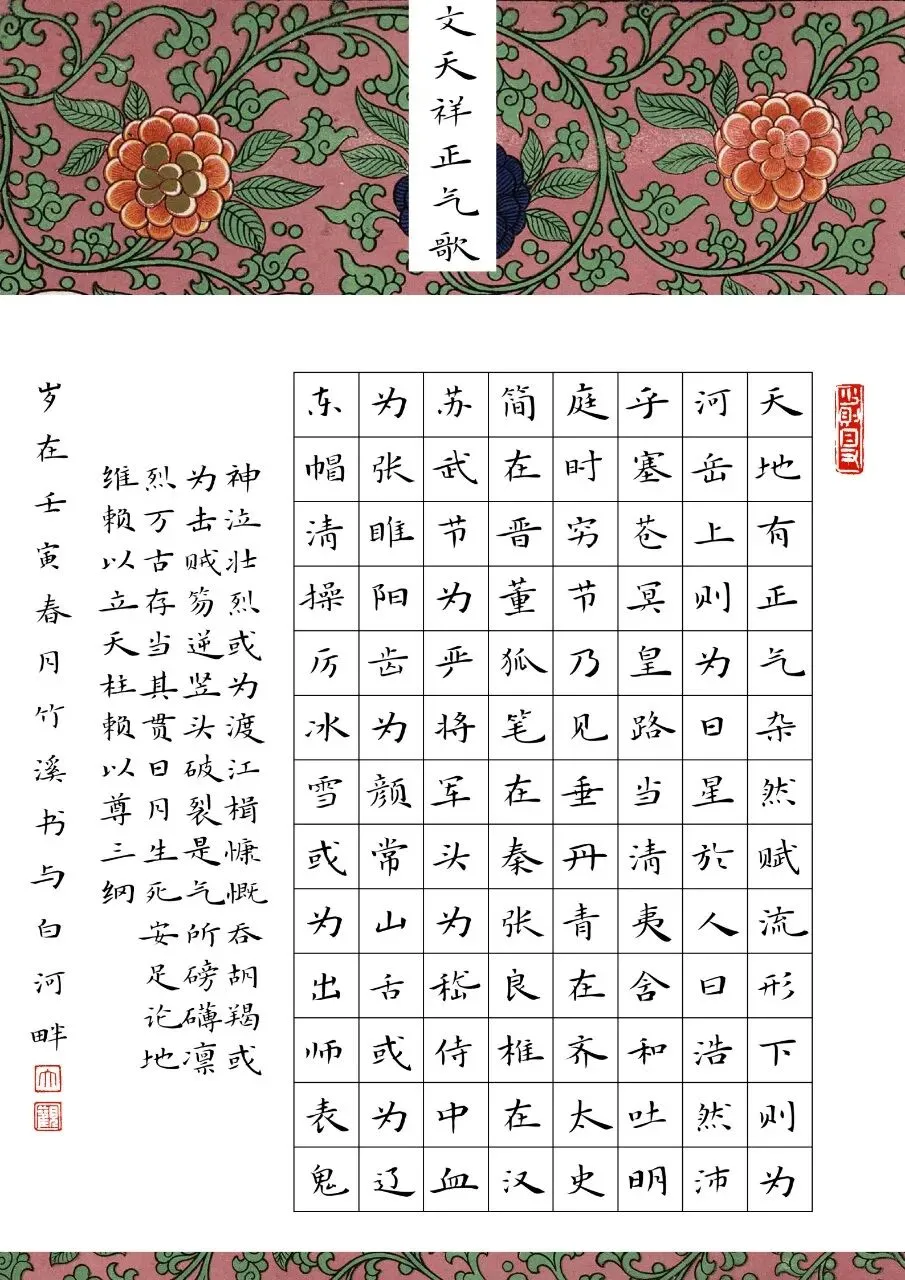 文天祥正气歌
天地有正气杂然赋流形下则为
河岳上则为日星於人曰浩然沛
乎塞苍冥皇路当清夷含和吐明
庭时穷节乃见垂丹青在齐太史
简在晋董狐笔在秦张良椎在汉
苏武节为严将军头为嵇侍中血
为张睢阳齿为颜常山舌或为辽
东帽清操厉冰雪或为出师表鬼
神泣壮烈或为渡江楫慷慨吞胡羯或
为击贼笏逆竖头破裂是气所磅礴凛
烈万古存当其贯日月生死安足论地
维赖以立天柱赖以尊三纲
岁在壬寅春月竹溪书与白河畔